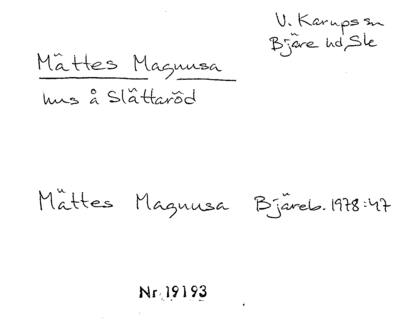 V. Karups sn
Bjäre hd, Sk
Mättes Magnusa
hus å Slättaröd
Mättes Magnusa Bjäreb. 1978:47
Nr 19193